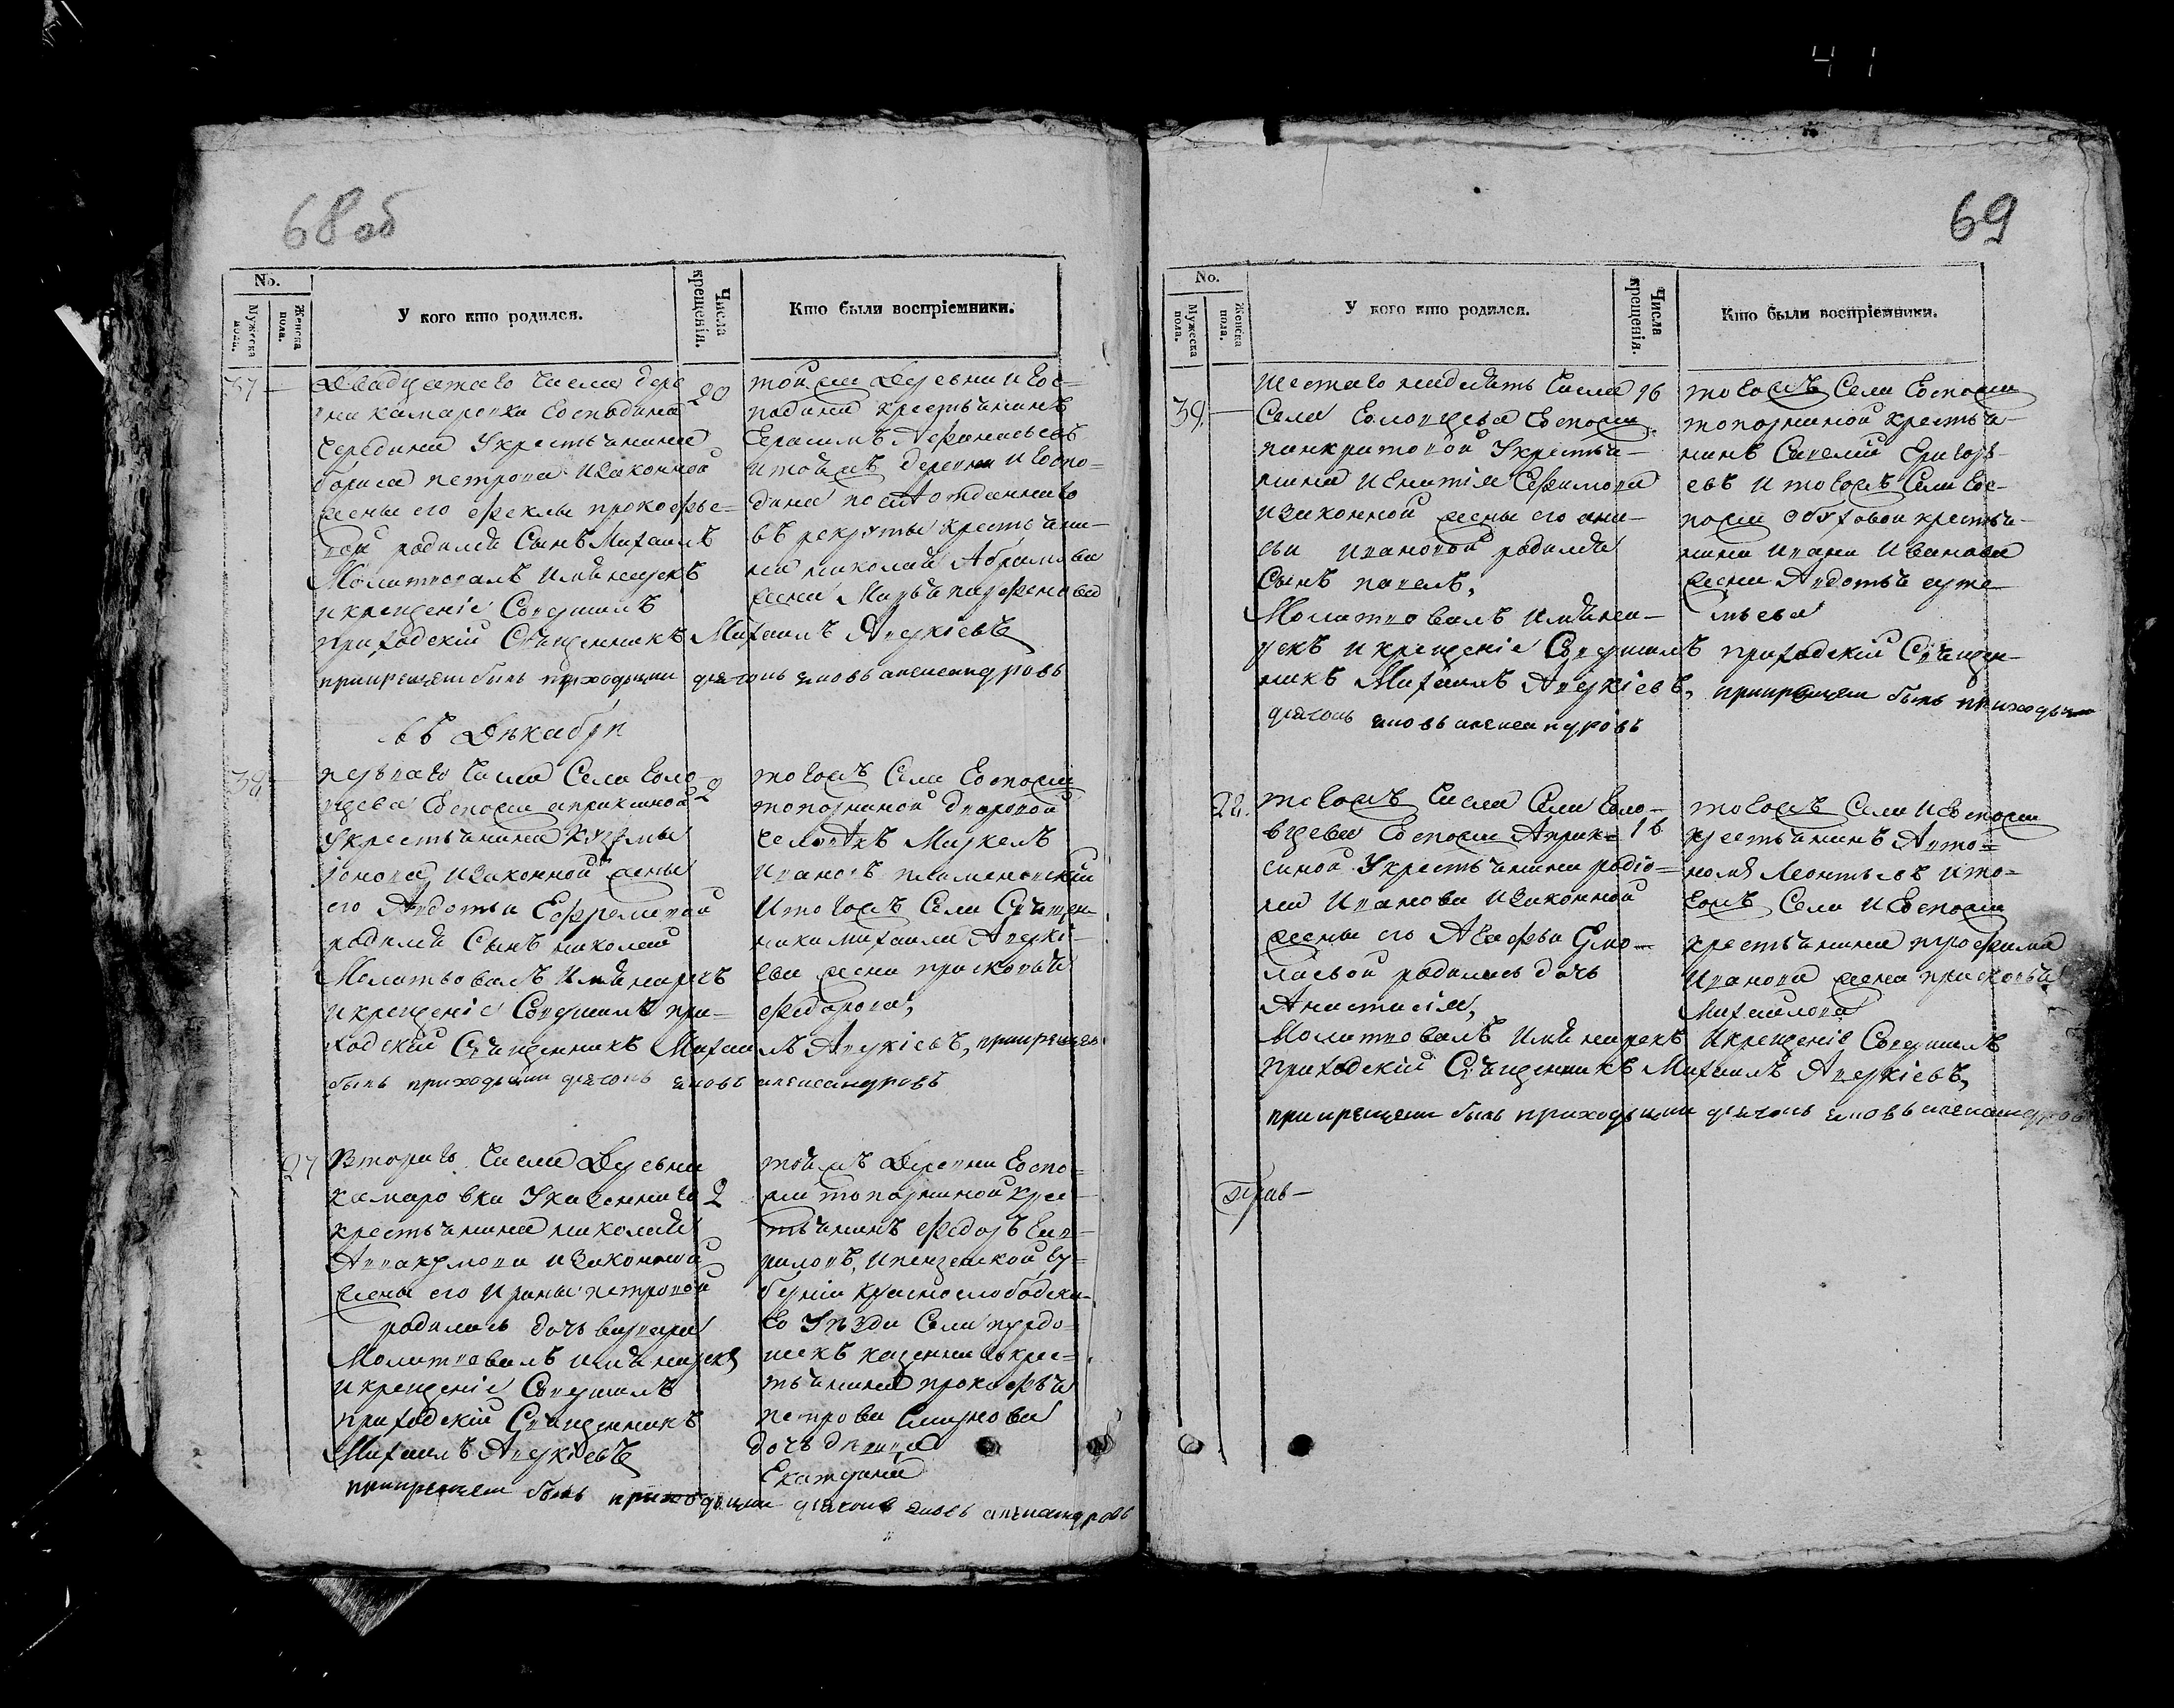 41
68 об
No.
Мужеска пола.
Женска пола.
У кого кто родился.
Числа крещенія.
Кто были воспріемники.
37
Двадцатаго числа дере
вни камаровки Господина
Середина Укрестьянина
бориса петрова изаконной
жены его феклы прокофье=
вой родился Сынъ Михаилъ
Молитвовалъ имя нарекъ
икрещеніе Совершилъ
приходскій Священникъ Михаилъ Аверкіевъ
прикрещеніи былъ приходскій дьячокъ яковъ александровъ
20
той же Деревни и Гос=
подина крестьянинъ
Герасимъ Афанасьевъ
и тояжъ деревни и Госпо=
дина отданнаго
въ рекруты крестьяни-
на николая Абрамова
жена Марья парфенова
въ Декабрѣ
38
перваго числа Села Голо-
вцева Госпожи априкиной
Укрестьянина кузмы
іонова изаконной жены
его Авдотьи Ефремовой
родился Сынъ николай
Молитвовалъ Имя нарекъ
икрещеніе Совершилъ при=
ходскій Священникъ Михаилъ Аверкіевъ, прикрещеніи
былъ приходскій дьячокъ яковъ александровъ
2
тогожъ Села Госпожи
топорниной дворовой
человекъ Маркелъ
Ивановъ
Итогожъ Села Священ
ника михаила Аверкі-
ева жена прасковья
федорова,
27
Втораго числа Деревни
камаровки Указеннаго
крестьянина николая
Аввакумова изаконной
жены его Ирины петровой
родилась дочь варвара
Молитвовалъ имя нарекъ
икрещеніе Совершилъ
приходскій Священникъ
Михаилъ Аверкіевъ
прикрещеніи былъ приходскій дьячокъ яковъ александровъ
2
тояжъ Деревни Госпо=
жи топорниной крес-
тьянинъ федоръ Гав-
риловъ, ипензенской гу=
берніи краснослободска-
го Уѣзда Села
казеннаго крес=
тьянина прокофья
петрова Смирнова
дочь девица
Екатерина
69
No.
Мужеска пола.
Женска пола.
У кого кто родился.
Числа крещенія.
Кто были воспріемники.
39.
шестаго надесять числа
Села Головцева Госпожи
панкратовой Укрестья-
нина Игнатія Ефимова
изаконной жены его ани-
сьи ивановой родился
Сынъ павелъ,
Молитвовалъ имя на-
рекъ икрещеніе Совершилъ приходскій Священ-
никъ Михаилъ Аверкіевъ, прикрещеніи былъ приходскій
дьячокъ яковъ александровъ
16
тогожъ Села Госпожи
топорниной крестья-
нинъ Савелій Григорь-
евъ и тогожъ Села Гос-
пожи Обуховой крестья-
нина ивана Иванова
жена Авдотья
28.
тогожъ числа Села Голо-
вцева Госпожи Априк=
синой Укрестьянина родіо=
на Иванова изаконной
жены его Агафьи Ермо-
лаевой родилась дочь
Анастасія,
Молитвовалъ имя нарекъ икрещеніе Совершилъ
приходскій Священникъ Михаилъ Аверкіевъ,
прикрещеніи былъ приходскій дьячокъ яковъ александровъ
16
тогожъ Села и Госпожи
крестьянинъ Авто=
номъ Леонтьевъ ито=
гожъ Села и Госпожи
крестьянина трофима
Иванова жена прасковья
Михаилова